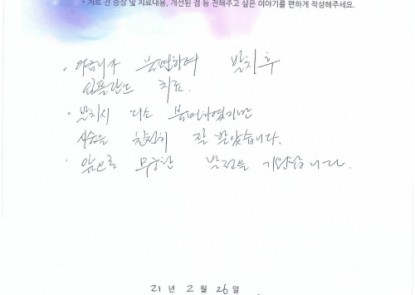 • 치료 전 증상 및 치료내용, 개선된 점 등 전해주고 싶은 이야기를 편하게 작성해주세요.
• 어금니가 불편하여 발치후
임플란트 치료.
• 발치시 다소 불편하였지만
시술은 친절히 잘 받았습니다.
• 앞으로 무궁한 발전을 기원합니다.
21 년 2 월 26 일